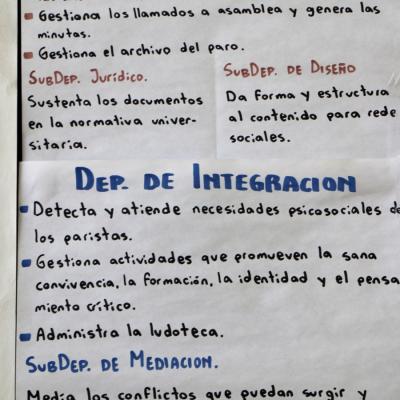 Gestiona los llamados a asamblea y genera las
minutas.
Gestiona el archivo del paro.
SubDep. Jurídico.
Sustenta los documentos
en la normativa univer-
sitaria.
SubDep. de Diseño
Da forma y estructura
al contenido para rede
sociales.
Dep. de Integracion
Detecta y atiende necesidades psicosociales de
los paristas.
Gestiona actividades que promueven la sana
convivencia, la formación, la identidad y el pensa
miento crítico.
Administra la ludoteca.
SubDep. de Mediacion.
Media los conflictos que puedan surgir y